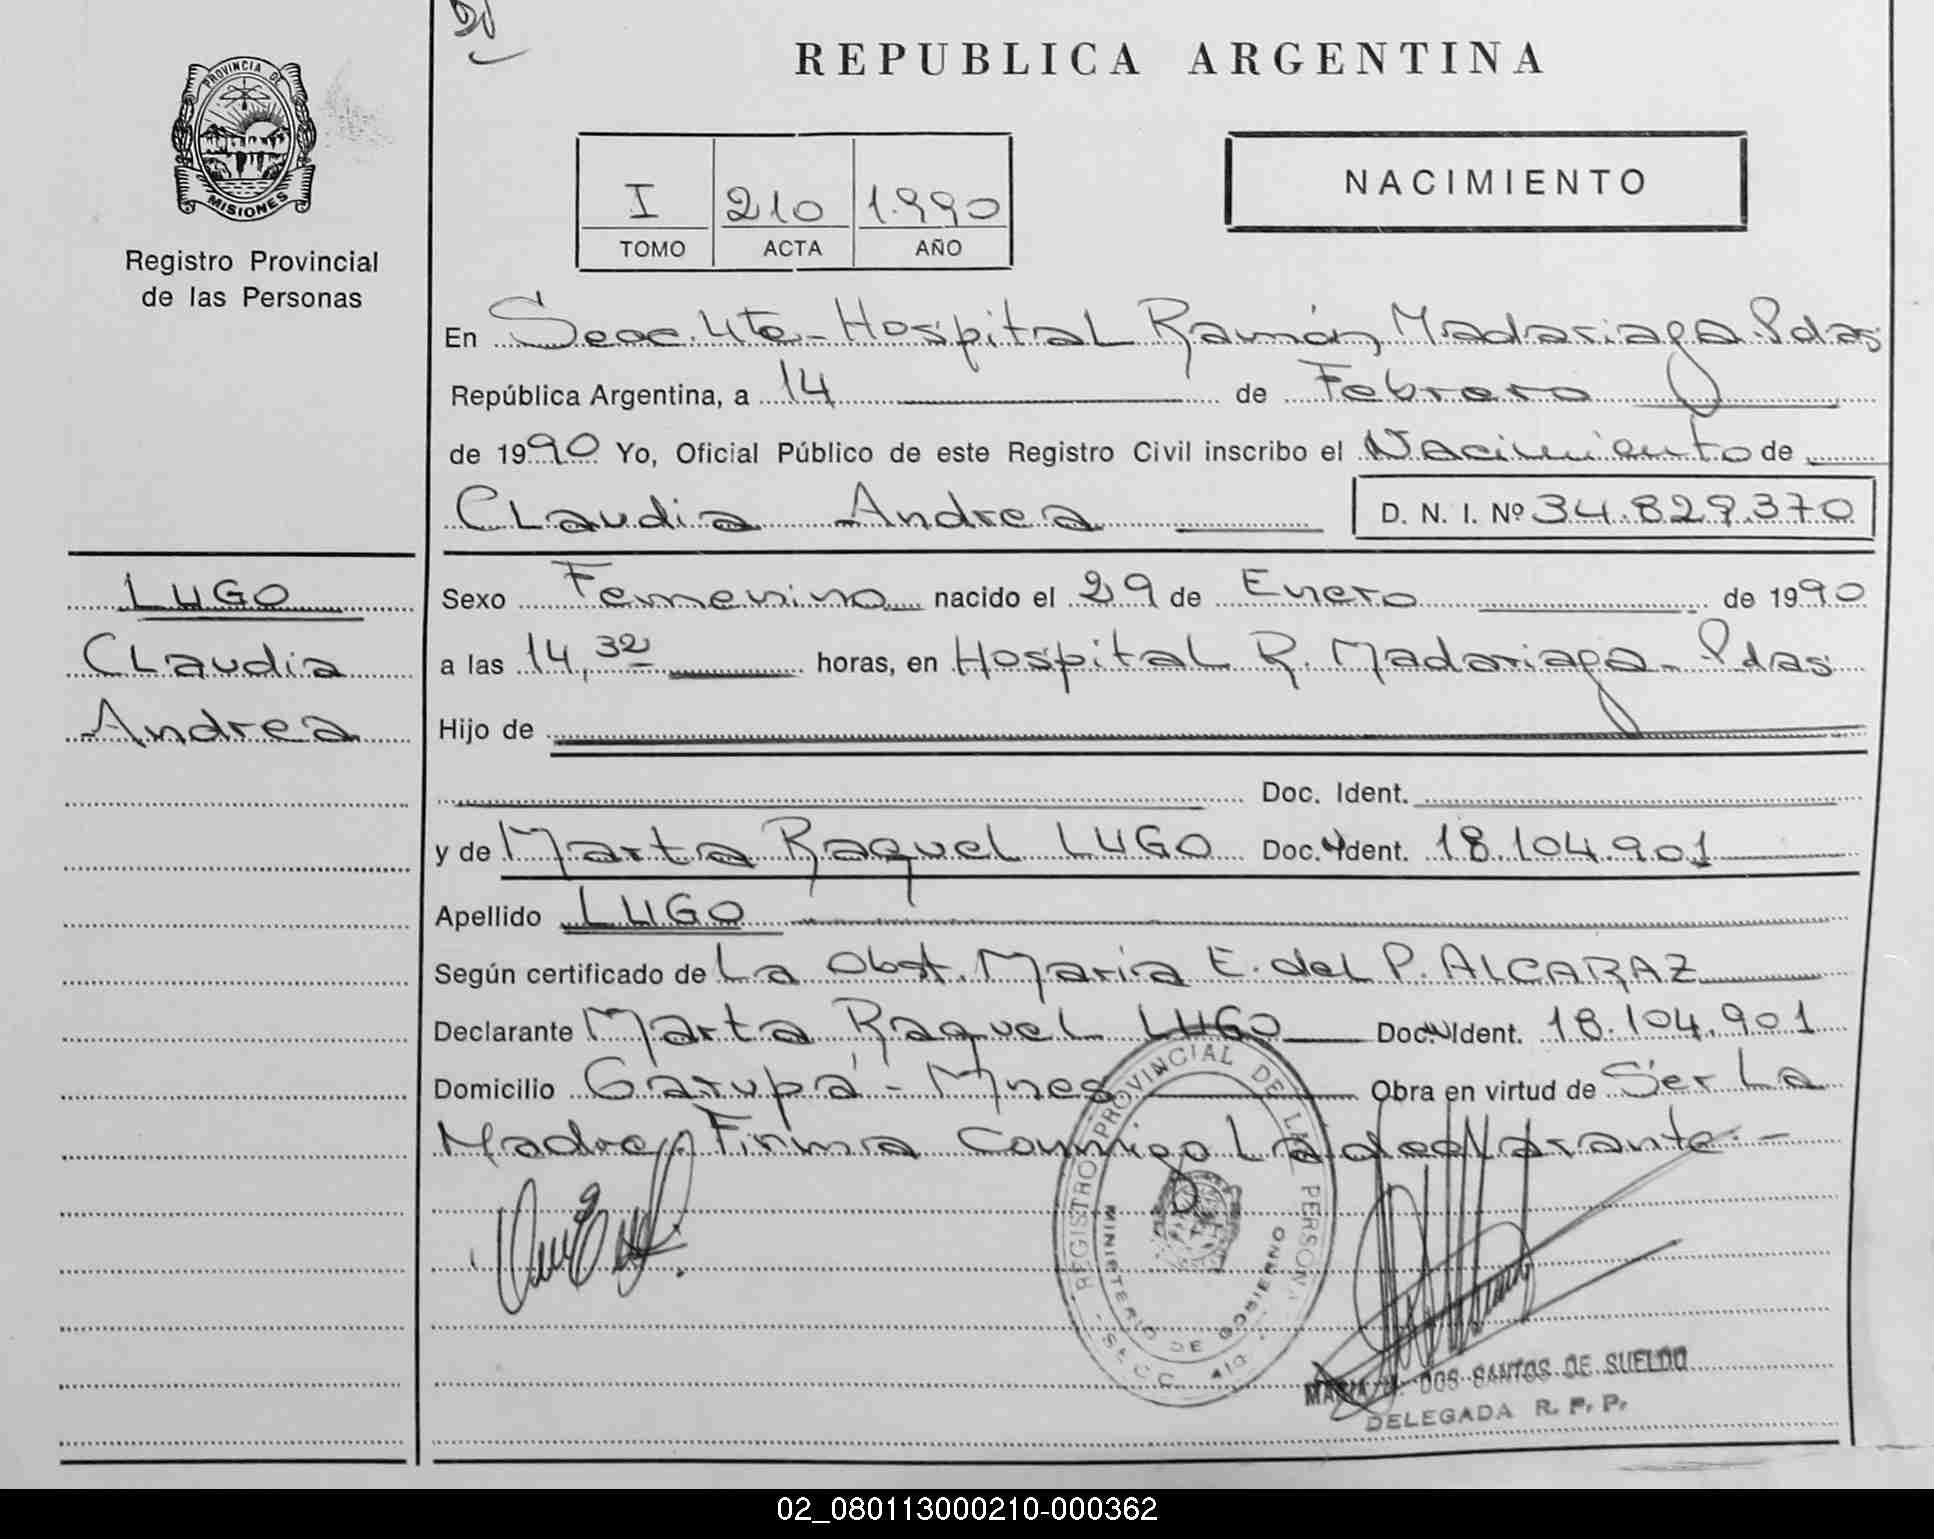 PROVINCIA DE
MISIONES
Registro Provincial
de las Personas
REPUBLICA ARGENTINA
I 210 1.990
TOMO ACTA AÑO
NACIMIENTO
En Secc. 4ta - Hospital Ramón Madariaga. Pdas
República Argentina, a 14 de Febrero
de 1990 Yo, Oficial Público de este Registro Civil inscribo el Nacimiento de
Claudia Andrea D. N. I. Nº 34.829.370
LUGO
Claudia
Andrea
Sexo Femenino nacido el 29 de Enero de 1990
a las 14,32 horas, en Hospital R. Madariaga - Pdas
Hijo de
Doc. Ident.
y de Marta Raquel LUGO Doc. Ident. 18.104.901
Apellido LUGO
Según certificado de La Obst. María E. del P. ALCARAZ
Declarante Marta Raquel LUGO Doc. Ident. 18.104.901
Domicilio Garupá - Mnes Obra en virtud de Ser La
Madre. Firma Conmigo La declarante. -
REGISTRO PROVINCIAL DE LAS PERSONAS
MINISTERIO DE GOBIERNO
MARIA DOS SANTOS DE SUELDO
DELEGADA R. P. P.
02_080113000210-000362